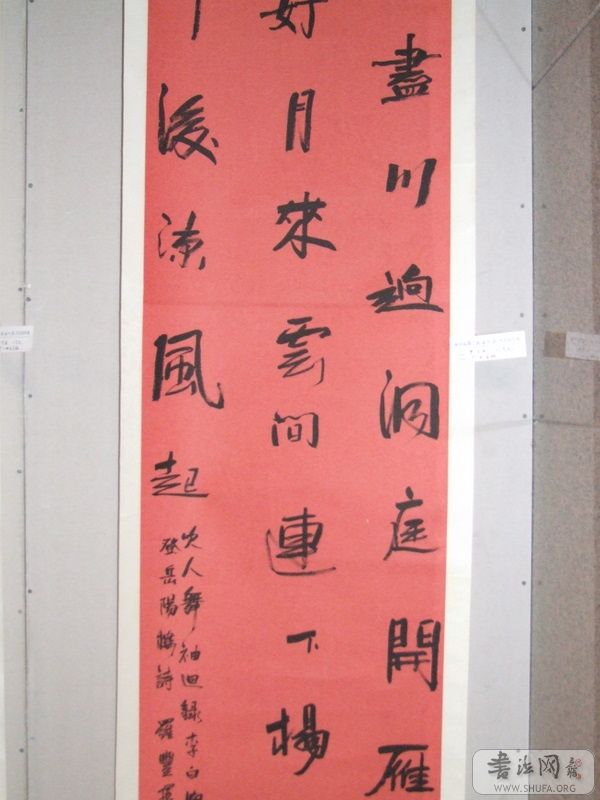 盡川迥洞庭開雁
好月來雲間連下榻
後涼風起
吹人舞袖迴錄李白
登岳陽樓詩 羅豐
書法网
WWW.SHUFA.ORG